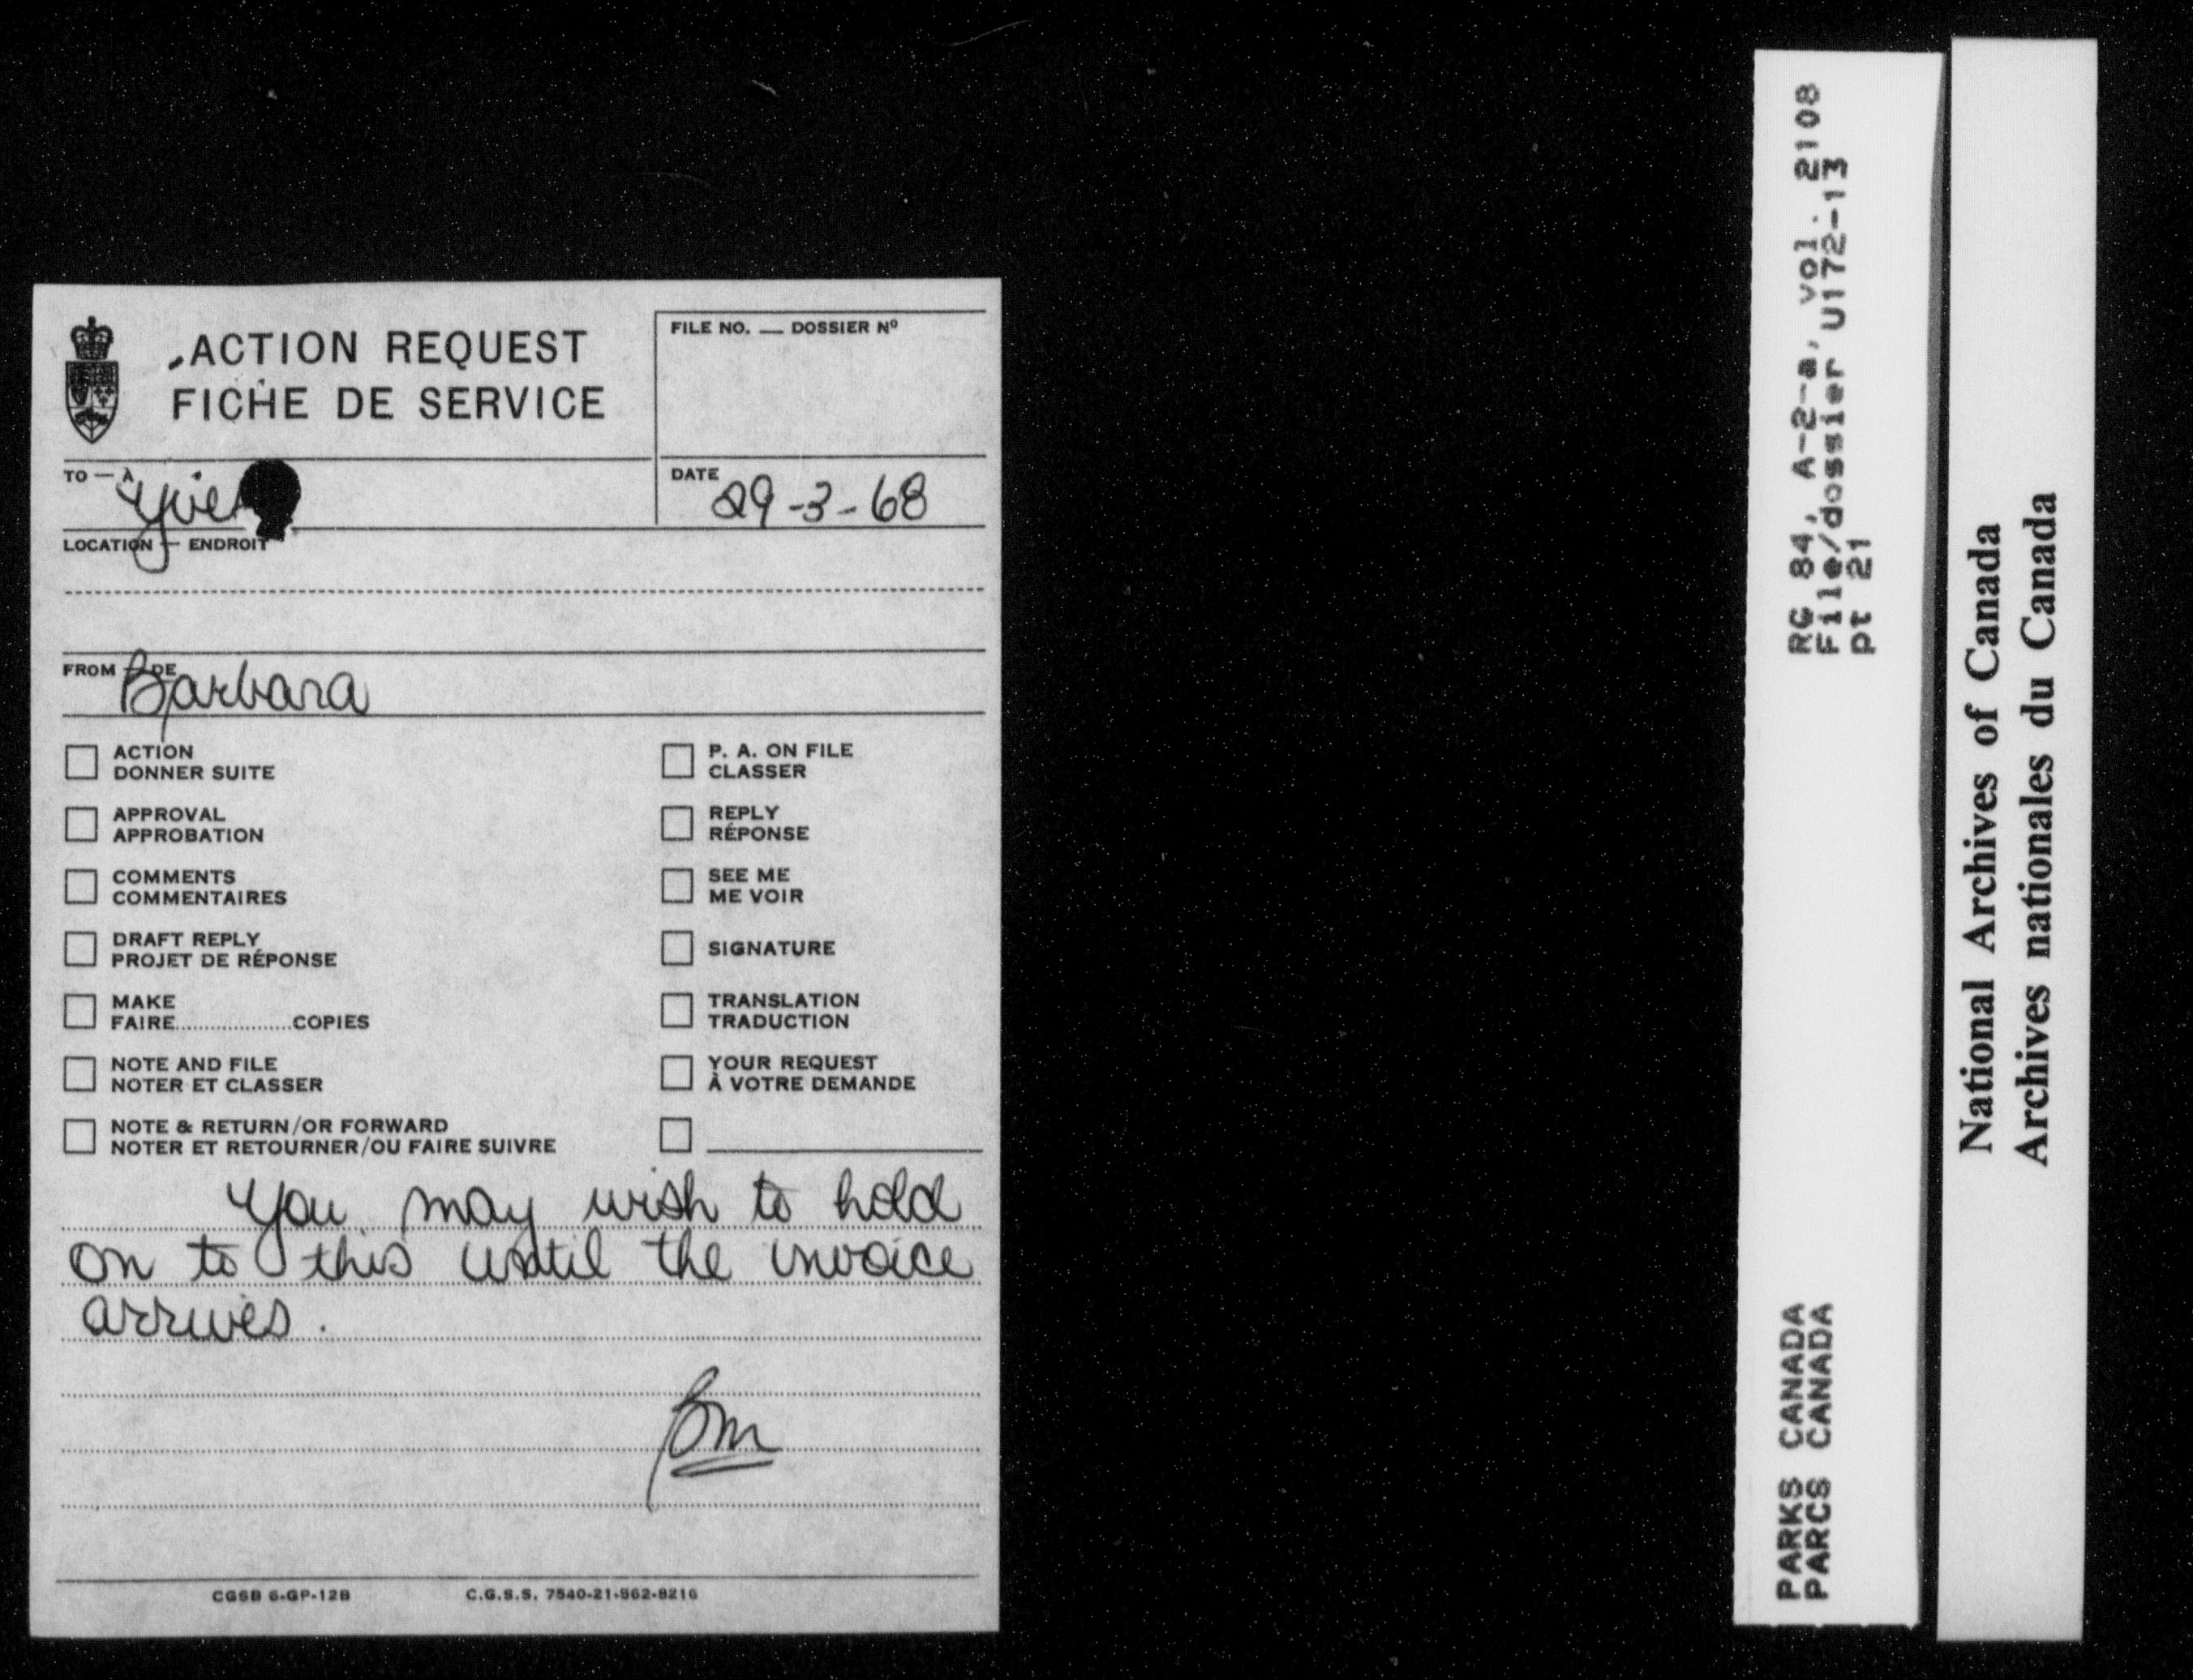 ACTION REQUEST
FICHE DE SERVICE
FILE NO. — DOSSIER Nº
TO — À
DATE 29-3-68
LOCATION — ENDROIT
FROM — DE Barbara
ACTION
DONNER SUITE
APPROVAL
APPROBATION
COMMENTS
COMMENTAIRES
DRAFT REPLY
PROJET DE RÉPONSE
MAKE
FAIRE....................COPIES
NOTE AND FILE
NOTER ET CLASSER
NOTE & RETURN/OR FORWARD
NOTER ET RETOURNER/OU FAIRE SUIVRE
P. A. ON FILE
CLASSER
REPLY
RÉPONSE
SEE ME
ME VOIR
SIGNATURE
TRANSLATION
TRADUCTION
YOUR REQUEST
À VOTRE DEMANDE
You may wish to hold
on to this until the invoice
arrives.
Bm
CGSB 6-GP-12B
C.G.S.S. 7540-21-562-8216
RG 84, A-2-a, vol. 2108
File/dossier U172-13
pt 21
PARKS CANADA
PARCS CANADA
National Archives of Canada
Archives nationales du Canada